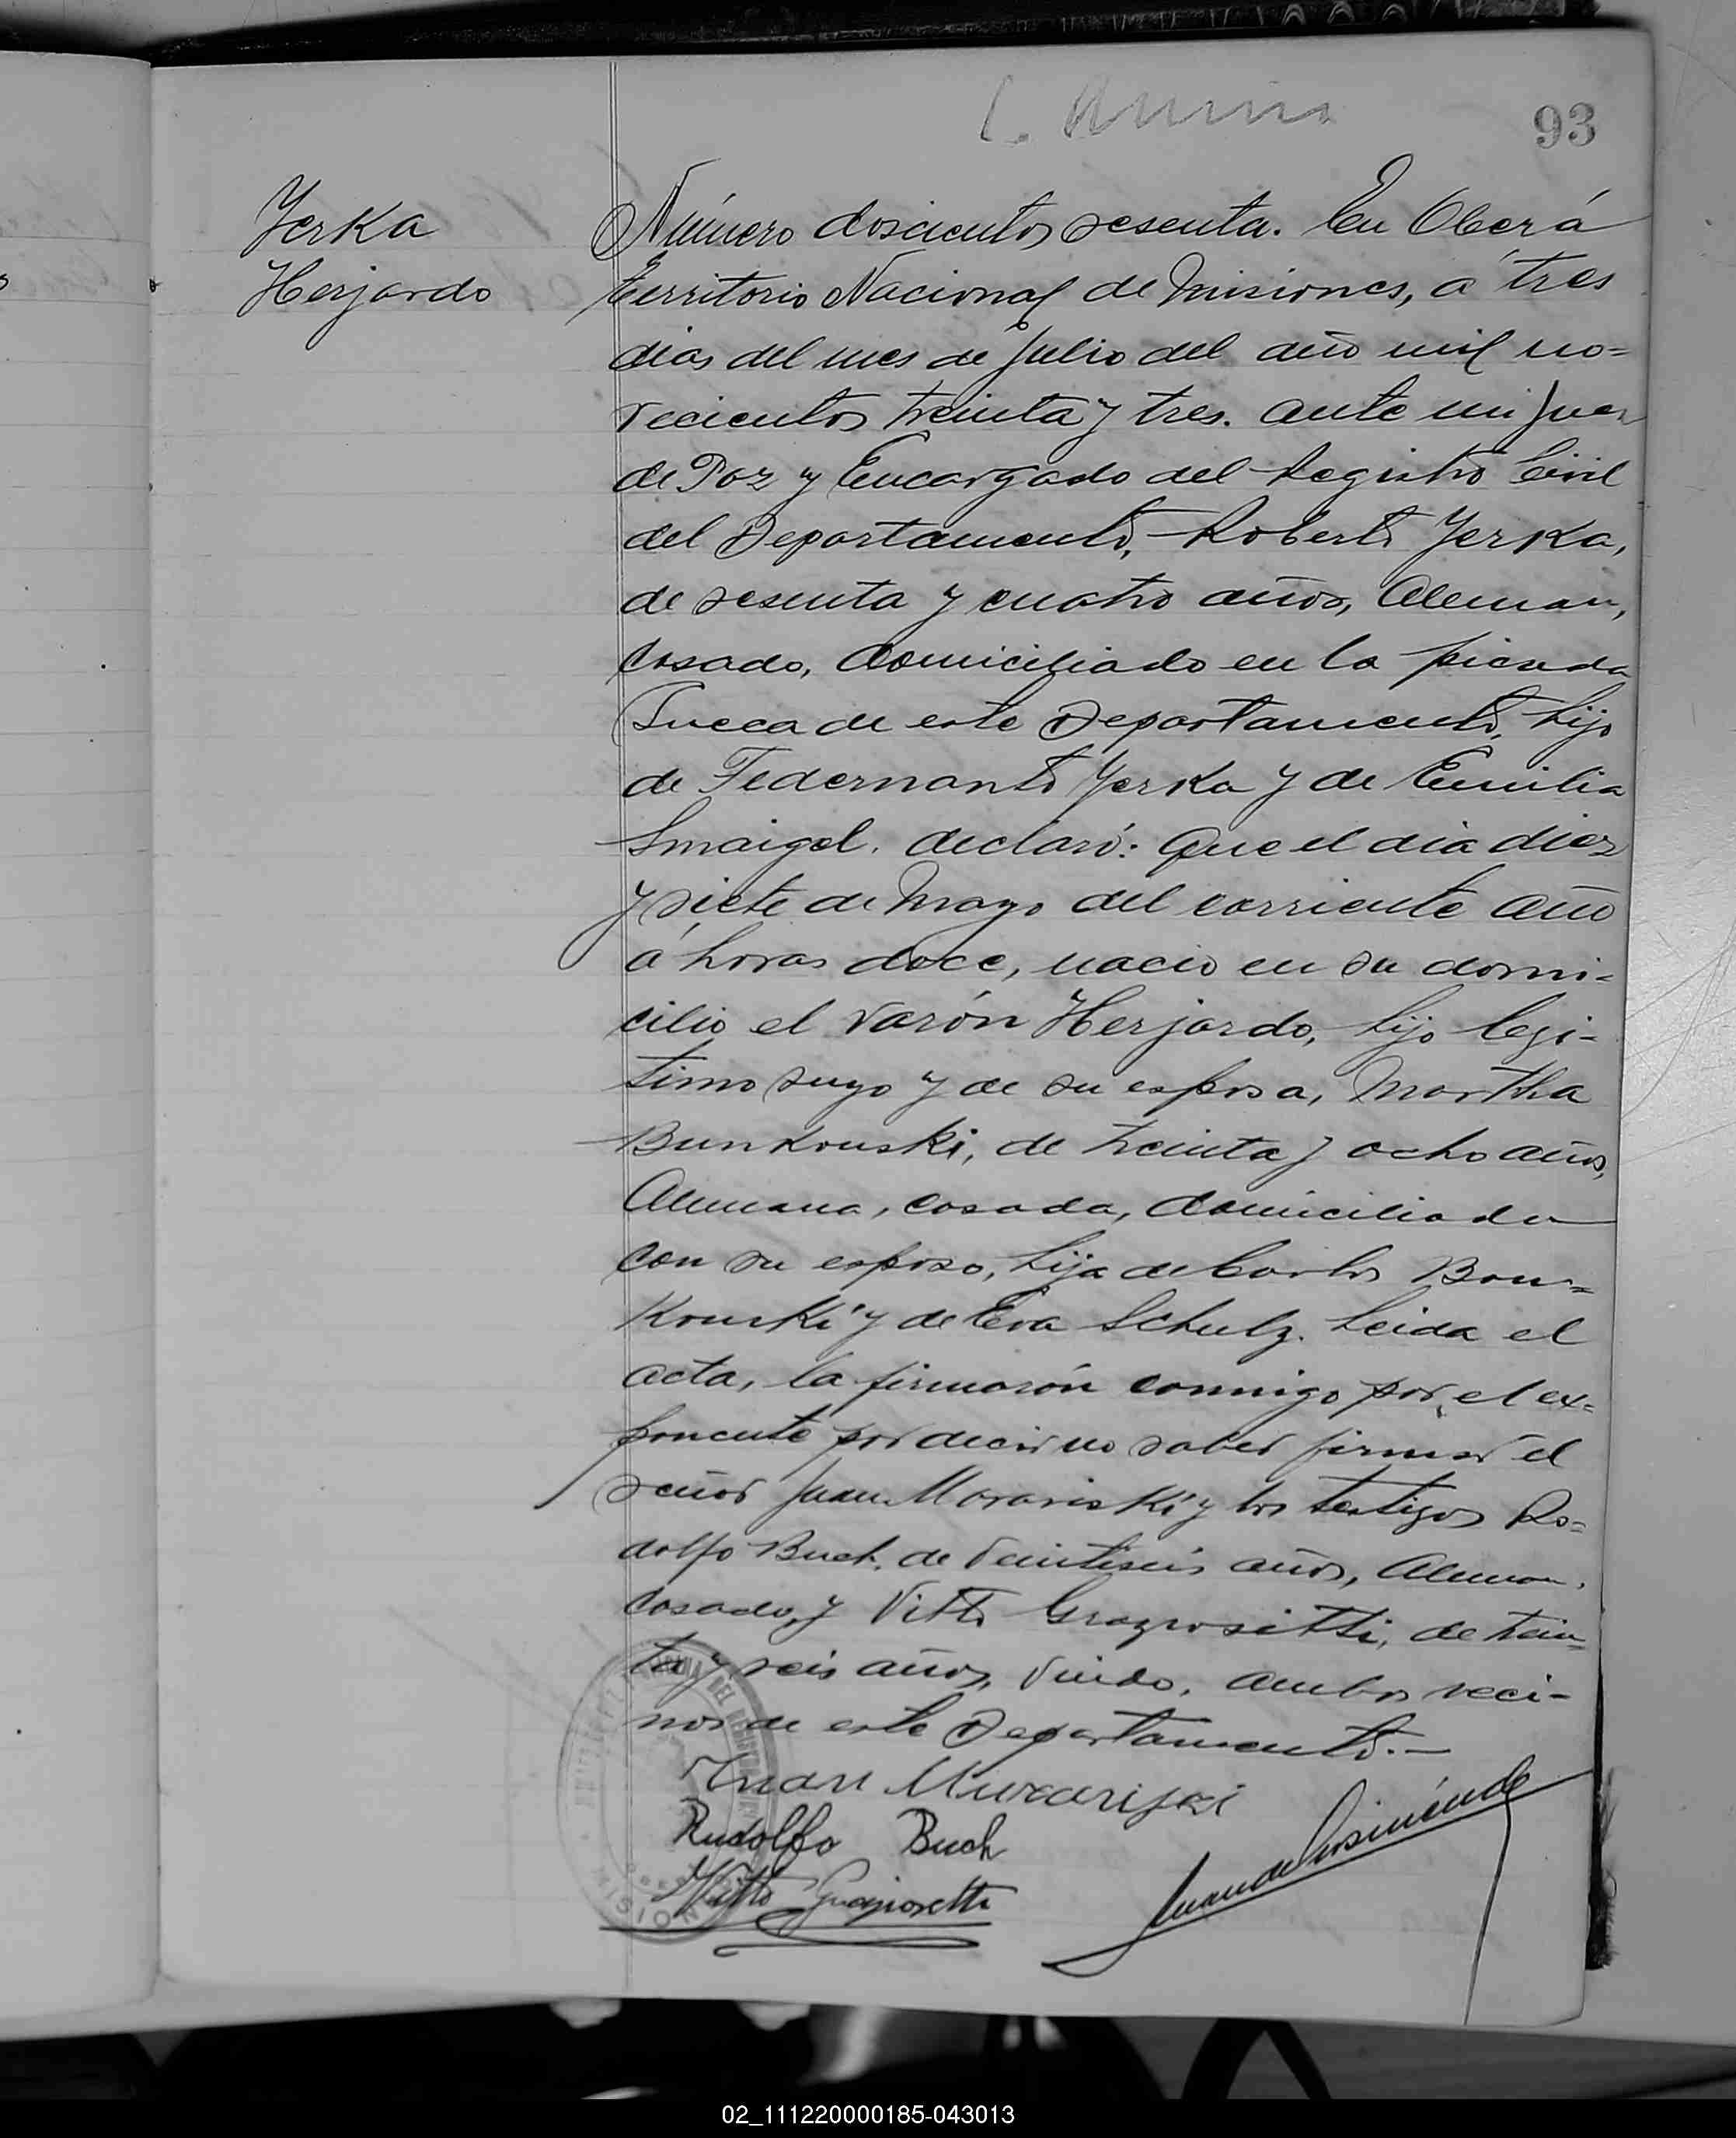 93
Yerka
Herjardo
Número doscientos sesenta. En Oberá
territorio Nacional de Misiones, á tres
dias del mes de Julio del año mil no=
vecientos treinta y tres. ante mi Juez
de Paz y Encargado del Registro Civil
del Departamento, Roberto Yerka,
de sesenta y cuatro años, Aleman,
casado, domiciliado en la picada
Sueca de este Departamento, hijo
de Federnanto Yerka y de Emilia
Smaigel. declaró: Que el dia diez
y siete de Mayo del corriente año
á horas doce, nacio en su domi-
cilio el varón Herjardo, hijo legi-
timo suyo y de su esposa, Martha
Bunkouski, de treinta y ocho años,
Alemana, casada, domiciliada
con su esposo, hija de Carlos Bon=
Kouski y de Eva Schulz. Leida el
acta, la firmarón conmigo por el ex=
ponente por decir no saber firmar el
señor Juan Moraviski y los testigos Ro=
dolfo Buch, de veintiseis años, Aleman,
casado, y Vitto Graziositti, de trein=
ta y seis años, viudo, ambos veci-
nos de este Departamento.—
Juan
Rudolfo Buch
Vitto
02_111220000185-043013